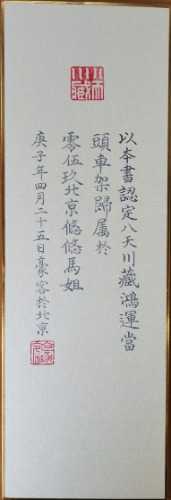 以本書認定八天川藏鴻運當
頭車架歸属於
零伍玖北京悠悠馬姐
庚子年四月二十五日豪客於北京